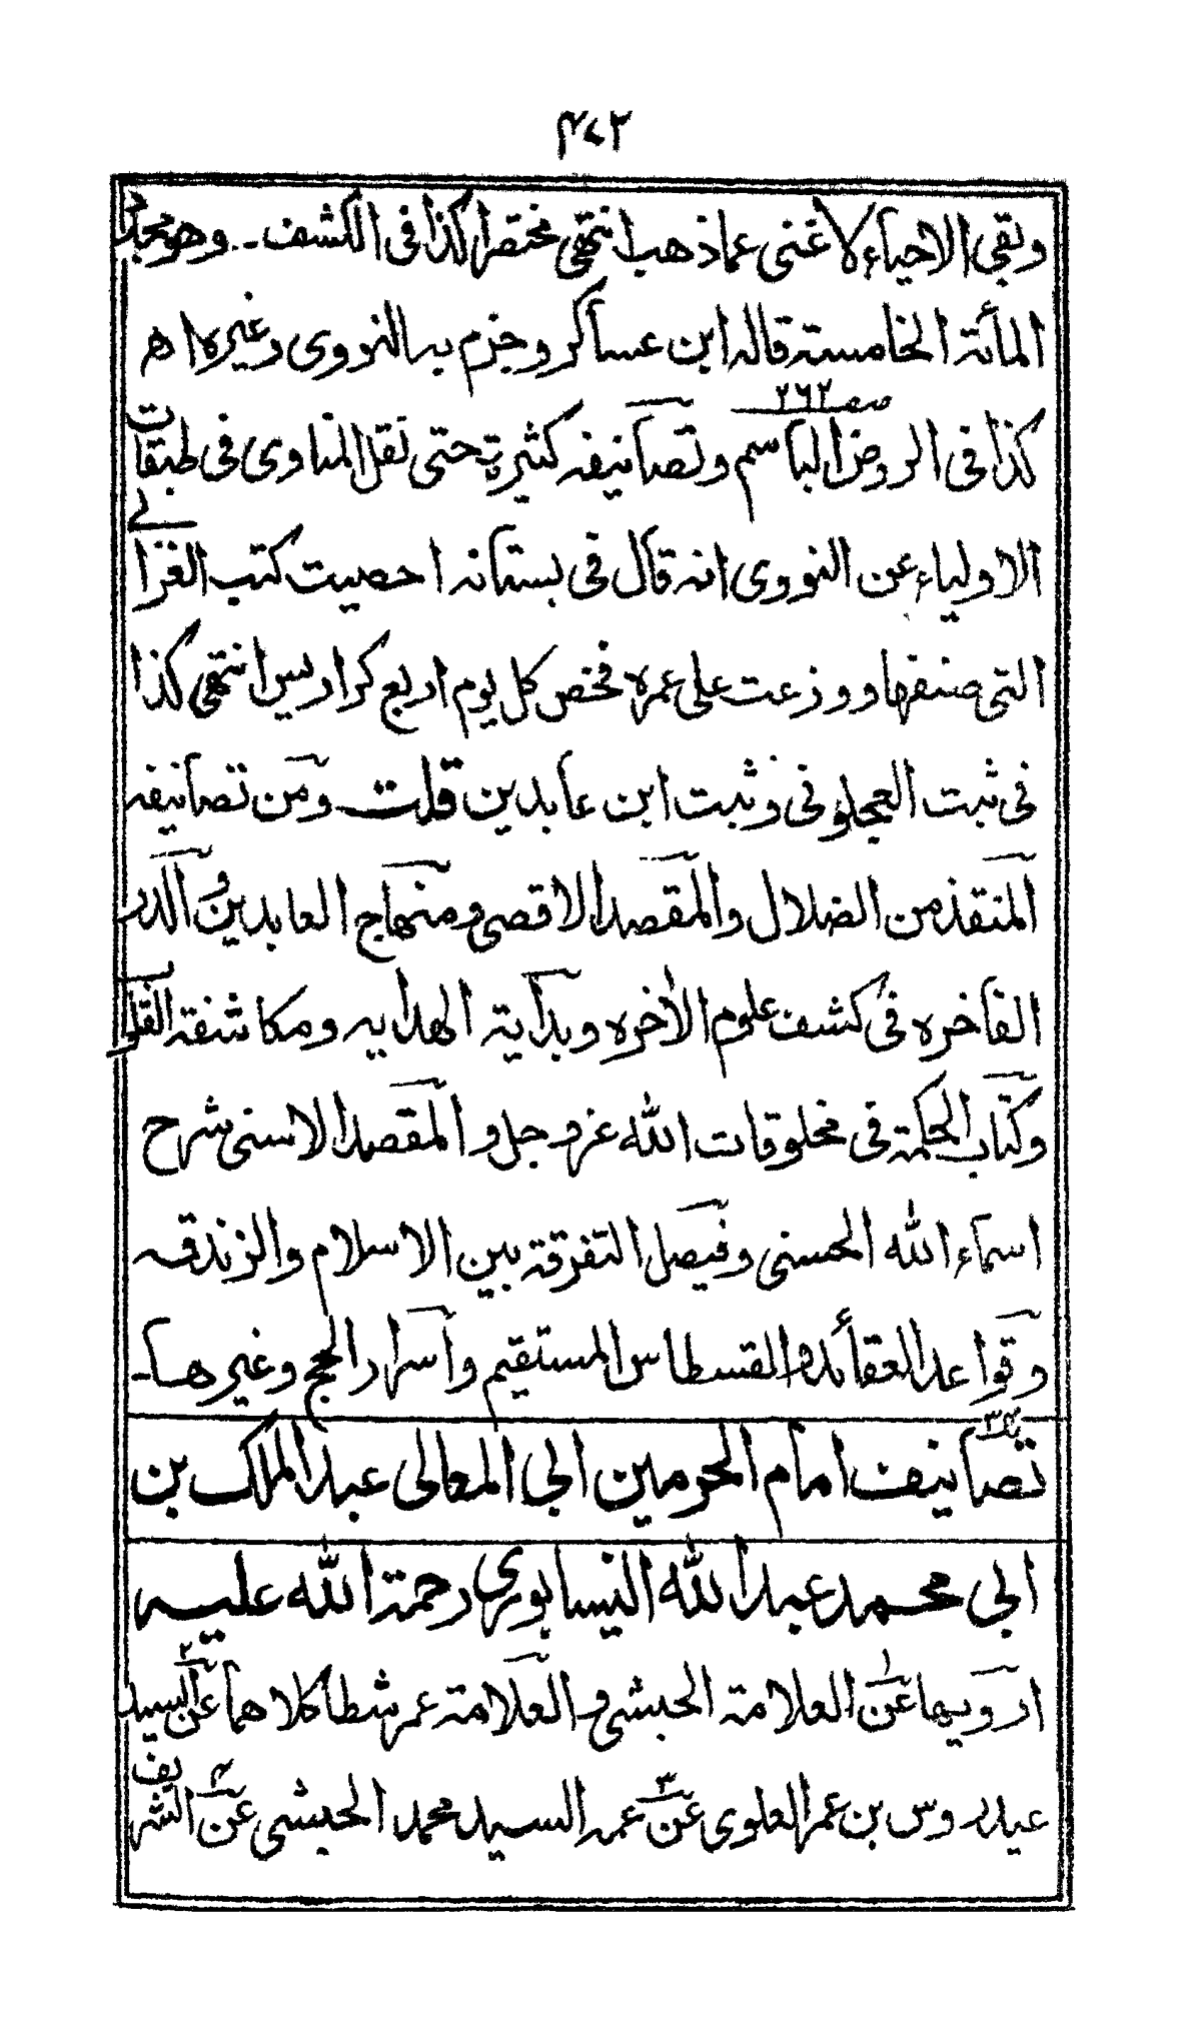 ٤٤٢
وبقي الاحياء لاغنى عما ذهب انتهى مختصرا كذا فى الكشف ـ وهو مجدد
المأئة الخامسة قاله ابن عساكر وجزم به النووى وغيره اه
صـ ٢٦٢
كذا فى الروض الباسم وتصانيفه كثيرة حتى نقل المناوى فى طبقات
الاولياء عن النووى انه قال فى بستانه احصيت كتب الغزالى
التى صنفها ووزعت على عمره فخص كل يوم اربع كراريس انتهى كذا
فى ثبت العجلونى وثبت ابن عابدين قلت ومن تصانيفه
المنقذ من الضلال والمقصد الاقصى ومنهاج العابدين والدر
الفاخره فى كشف علوم الاخره وبداية الهدايه ومكاشفة القلوب
وكتاب الحكمة فى مخلوقات الله عز وجل والمقصد الاسنى شرح
اسماء الله الحسنى وفيصل التفرقة بين الاسلام والزندقه
وقواعد العقائد والقسطاس المستقيم واسرار الحج وغيرها ـ
تصانيف امام الحرمين ابي المعالى عبد الملك بن
ابي محمد عبد الله النيسابوري رحمة الله عليه
ارويها عن١ العلامة الحبشى والعلامة عمر شطا كلاهما عن٢ السيد
عيدروس بن عمر العلوى عن٣ عمه السيد محمد الحبشى عن٤ الشريف